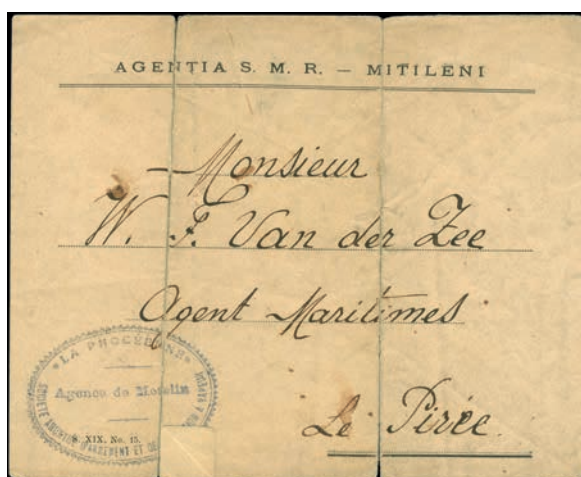 AGENȚIA S. M. R. — MITILENI
Monsieur
W. F. Van der Zee
Agent Maritimes
Le Pirée
LA PHOCÉENNE
Agence de Metelin
SOCIÉTÉ ANONYME D'ARMEMENT ET DE
S. XIX. No. 15.